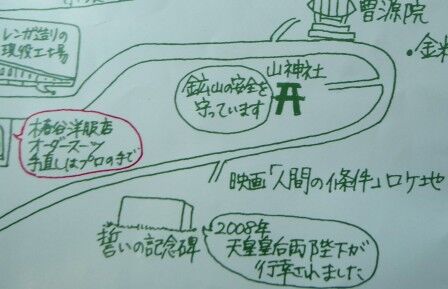 曹源院
レンガ造りの
現役工場
・金
山神社
鉱山の安全を
守っています
椿谷洋服店
オーダースーツ
手直しはプロの手で
映画「人間の條件」ロケ地
誓いの記念碑
2008年
天皇皇后両陛下が
行幸されました